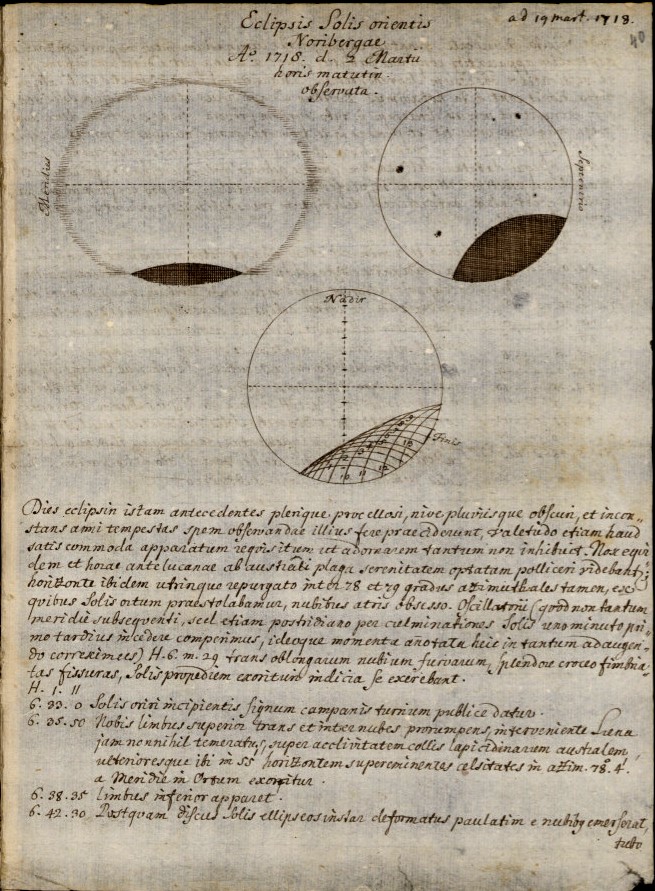 ad 19 mart. 1718.
40
Eclipsis Solis orientis
Noribergae
Aº. 1718. d. 2 Martii
horis matutin.
observata.
Meridies
Septentrio
Nadir
Finis
Dies eclipsin istam antecedentes plerique procellosi, nive pluviisque obscuri, et incon-
stans anni tempestas spem observandae illius fere praeciderunt, valetudo etiam haud
satis commoda apparatum requisitum ut adornarem tantum non inhibuit. Nox equi
dem et horae antelucanae ab australi plaga serenitatem optatam polliceri videbant;
horizonte ibidem utrinque repurgato inter 78 et 79 gradus azimuthales tamen, ex
quibus Solis ortum praestolabamur, nubibus atris obsesso. Oscillatorii (quod non tantum
meridie subsequenti, sed etiam postridiano per culminationes Solis uno minuto pri-
mo tardius incedere comperimus, ideoque momenta annotata heic in tantum adaugen-
do correximus) H. 6. m. 29 trans oblongarum nubium furvarum, splendore croceo fimbria-
tas fissuras, Solis propediem exorituri indicia se exerebant.
H. 1. 11
6. 33. 0 Solis oriri incipientis signum campanis turrium publice datur.
6. 35. 50 Nobis limbus superior trans et inter nubes prorumpens, interveniente Luna
jam nonnihil temeratus, super acclivitatem collis lapicidinarum australem,
veterioresque ibi in 55' horizontem supereminentes celsitates in azim. 78.º 4'.
a Meridie in Ortum exoritur.
6. 38. 35 limbus inferior apparet.
6. 42. 30 Postquam discus Solis ellipseos instar deformatus paulatim e nubibq emerserat,
tubo